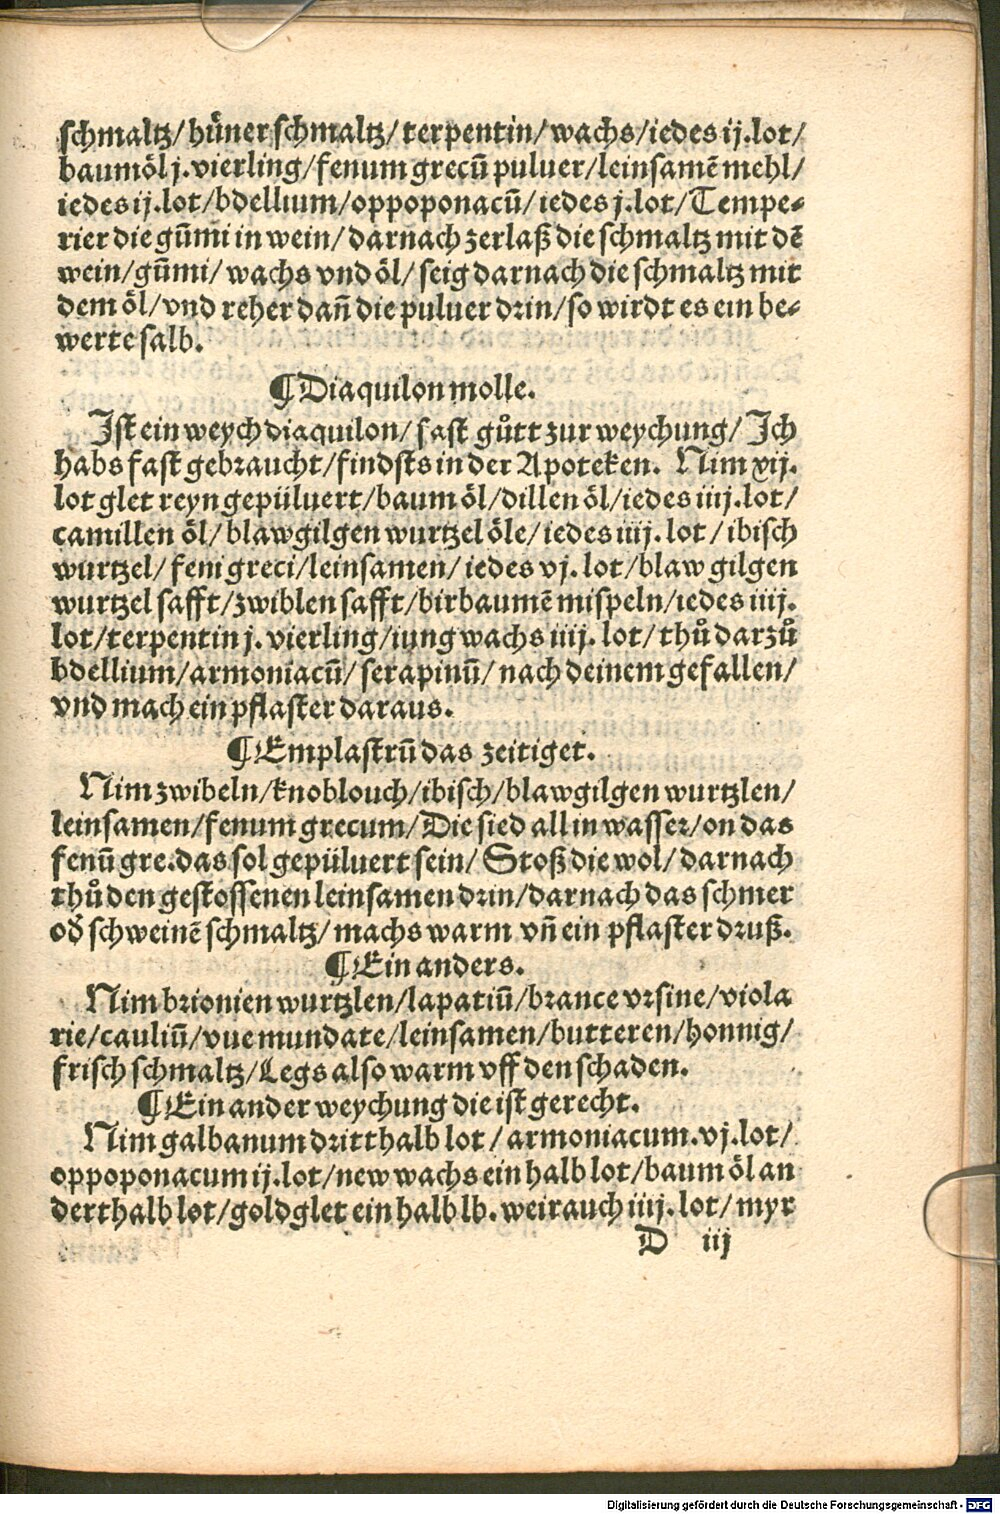 schmaltz/huͤner schmaltz/terpentin/wachs/iedes ij.lot/
baumoͤl j.vierling/fenum grecū puluer/leinsamē mehl/
iedes ij.lot/bdellium/oppoponacū/iedes j.lot/Tempe⸗
rier die gūmi in wein/darnach zerlaß die schmaltz mit dē
wein/gūmi/wachs vnd oͤl/seig darnach die schmaltz mit
dem oͤl/vnd reher dañ die puluer drin/so wirdt es ein be⸗
werte salb.
¶Diaquilon molle.
Ist ein weych diaquilon/fast guͦtt zur weychung/Ich
habs fast gebraucht/findsts in der Apoteken. Nim xij.
lot glet reyn gepüluert/baum oͤl/dillen oͤl/iedes iiij.lot/
camillen oͤl/blawgilgen wurtzel oͤle/iedes iiij.lot/ibisch
wurtzel/feni greci/leinsamen/iedes vj.lot/blaw gilgen
wurtzel safft/zwiblen safft/birbaumē mispeln/iedes iiij.
lot/terpentin j.vierling/iung wachs iiij.lot/thuͦ darzuͦ
bdellium/armoniacū/serapinū/nach deinem gefallen/
vnd mach ein pflaster daraus.
¶Emplastrū das zeitiget.
Nim zwibeln/knoblouch/ibisch/blawgilgen wurtzlen/
leinsamen/fenum grecum/Die sied all in wasser/on das
fenū gre.das sol gepüluert sein/Stoß die wol/darnach
thuͦ den gestossenen leinsamen drin/darnach das schmer
od̓ schweinē schmaltz/machs warm vñ ein pflaster druß.
¶Ein anders.
Nim brionien wurtzlen/lapatiū/brance vrsine/viola
rie/cauliū/vue mundate/leinsamen/butteren/honnig/
frisch schmaltz/Legs also warm vff den schaden.
¶Ein ander weychung die ist gerecht.
Nim galbanum dritthalb lot/armoniacum.vj.lot/
oppoponacum ij.lot/new wachs ein halb lot/baum oͤl an
derthalb lot/goldglet ein halb lb.weirauch iiij.lot/myr
D iij
Digitalisierung gefördert durch die Deutsche Forschungsgemeinschaft - DFG